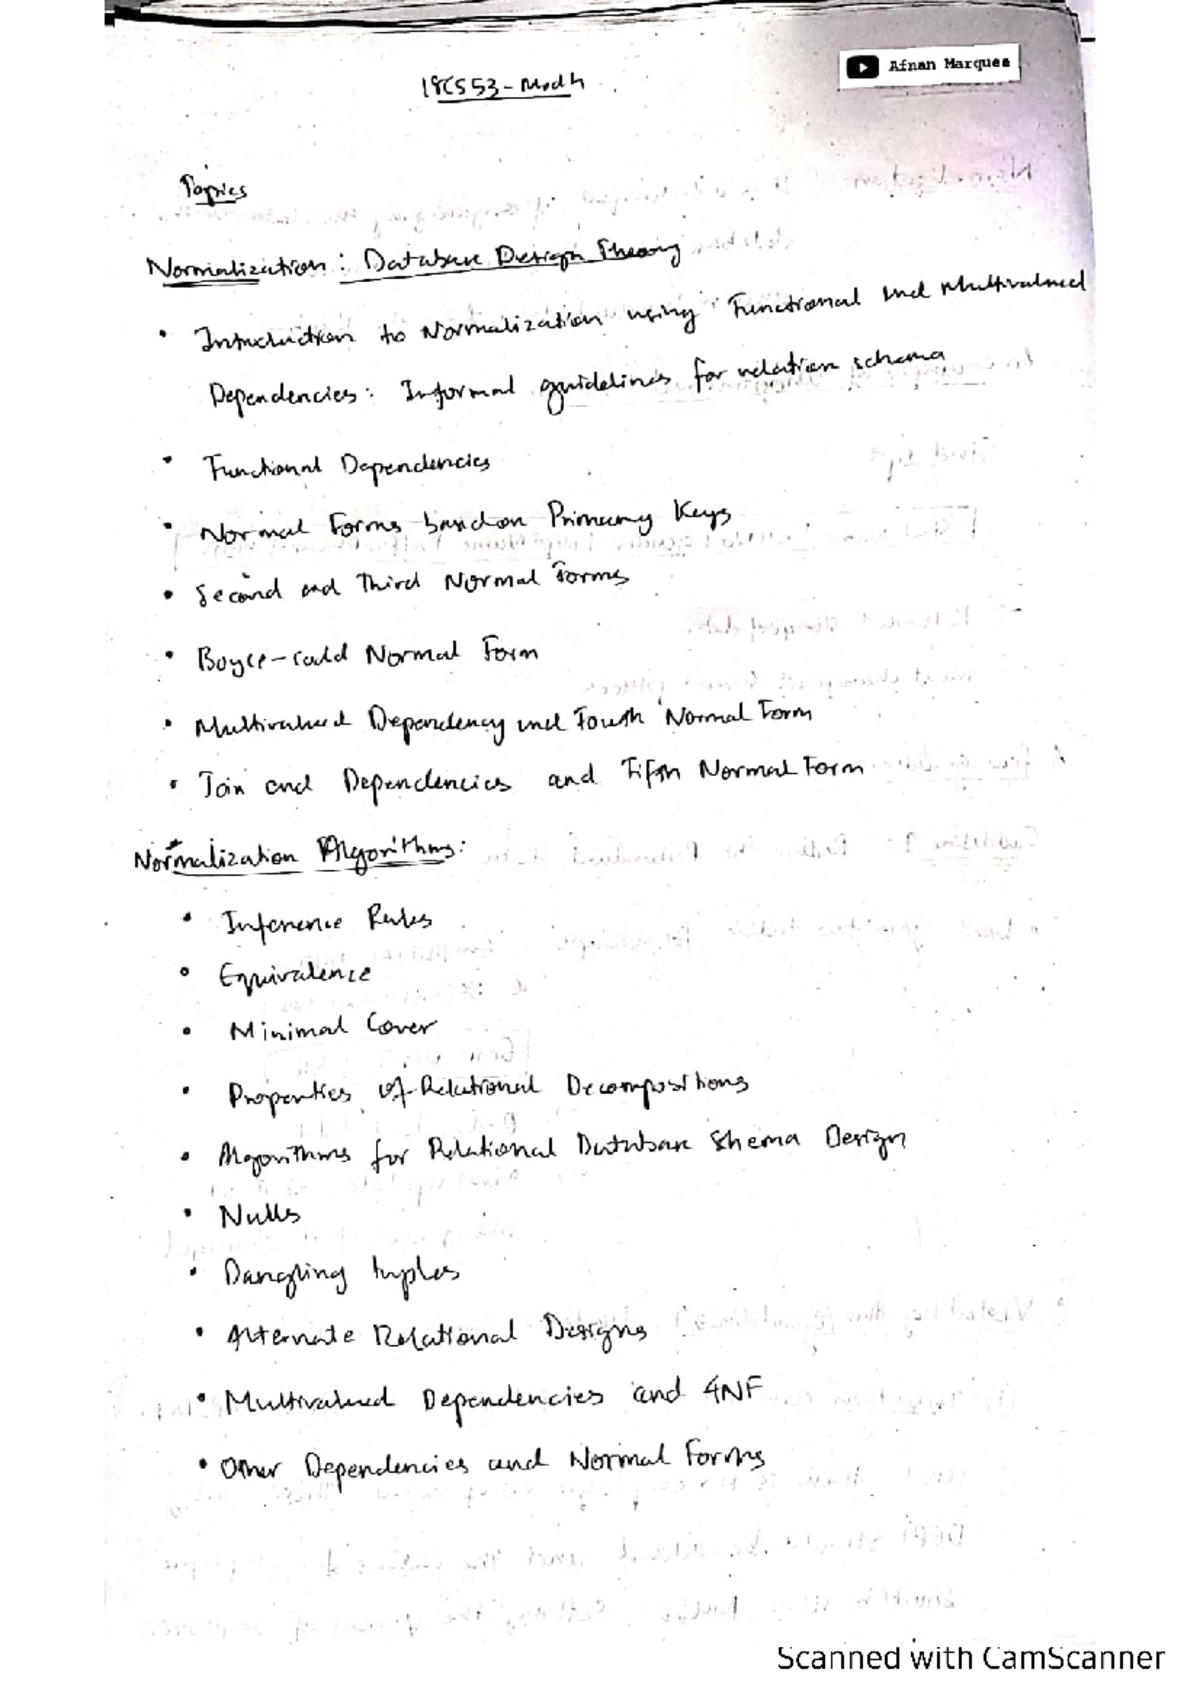 18CS53 - Mod 4
Afnan Marquee
Topics
Normalization : Database Design Theory
• Introduction to Normalization using Functional and Multivalued
Dependencies : Informal guidelines for relation schema
• Functional Dependencies
• Normal Forms based on Primary Keys
• Second and Third Normal Forms
• Boyce-Codd Normal Form
• Multivalued Dependency and Fourth Normal Form
• Join and Dependencies and Fifth Normal Form
Normalization Algorithms:
• Inference Rules
• Equivalence
• Minimal Cover
• Properties of Relational Decompositions
• Algorithms for Relational Database Shema Design
• Nulls
• Dangling tuples
• Alternate Relational Designs
• Multivalued Dependencies and 4NF
• Other Dependencies and Normal Forms
Scanned with CamScanner